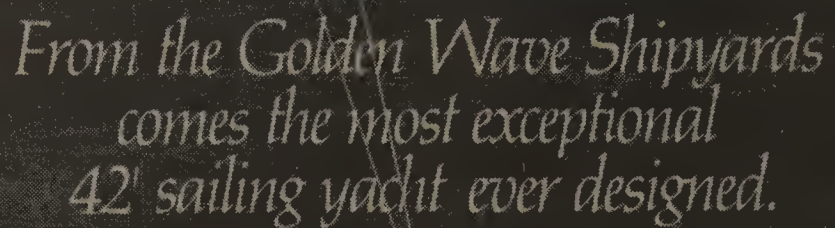 From the Golden Wave Shipyards
comes the most exceptional
42' sailing yacht ever designed.